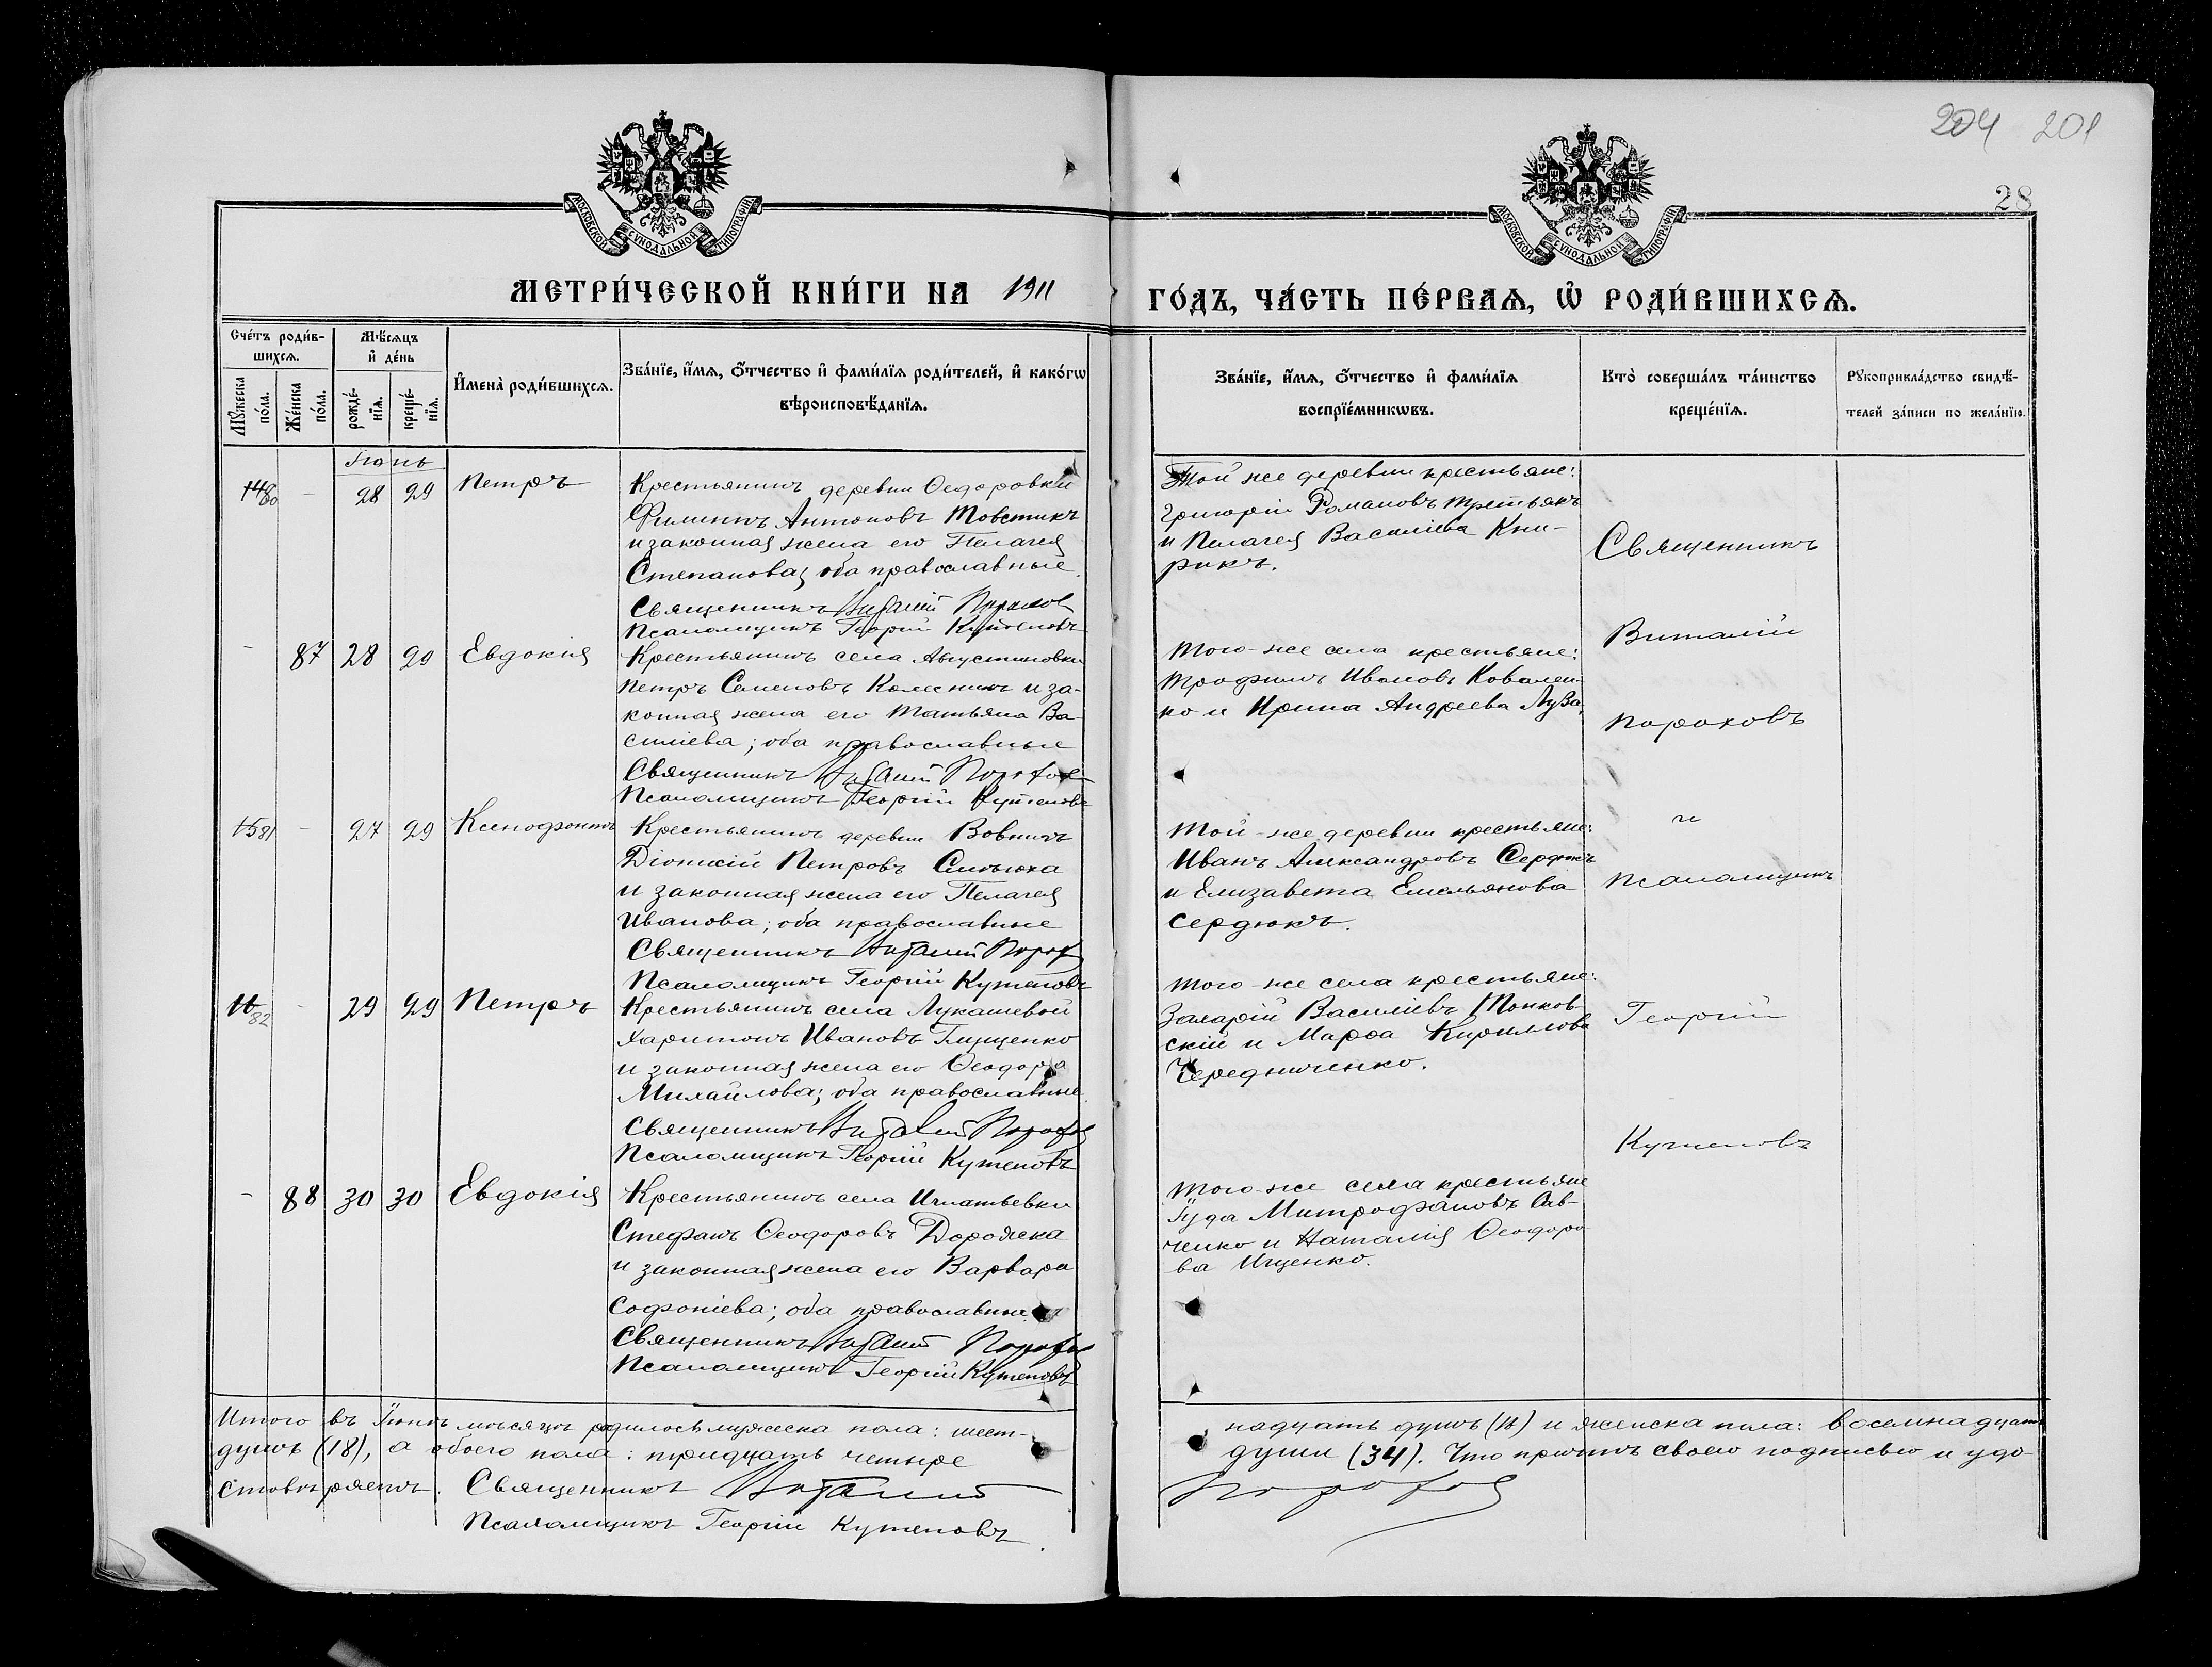 204 201
28
МОСКОВСКОЙ СѴНОДАЛЬНОЙ ТИПОГРАФІИ
МОСКОВСКОЙ СѴНОДАЛЬНОЙ ТИПОГРАФІИ
МЕТРИ́ЧЕСКОЙ КНИ́ГИ НА 1911
ГО́ДЪ, ЧА́СТЬ ПЕ́РВАѦ, Ѡ҆ РОДИ́ВШИХСѦ.
Сче́тъ роди́в-
шихсѧ.
Мѣ́сѧцъ
и҆ де́нь
Мꙋ́жеска
по́ла.
Же́нска
по́ла.
рожде́-
нїѧ.
креще́-
нїѧ.
И҆мена̀ роди́вшихсѧ.
Зва́нїе, и҆́мѧ, ѻ҆́тчество и҆ фами́лїѧ роди́телей, и҆ како́гѡ
вѣроисповѣ́данїѧ.
Зва́нїе, и҆́мѧ, ѻ҆́тчество и҆ фами́лїѧ
воспрїе́мникѡвъ.
Кто̀ соверша́лъ та́инство
креще́нїѧ.
Рꙋкоприкла́дство свидѣ́-
телей за́писи по жела́нїю.
Іюнь
80 - 28 29 Петръ
Крестьянинъ деревни Ѳедоровки
Филиппъ Антоновъ Товстикъ
и законная жена его Пелагея
Степанова; оба православные.
Священникъ Виталій Пороховъ
Псаломщикъ Георгій Кутеповъ
Той же деревни крестьяне:
Григорій Романовъ Третьякъ
и Пелагея Василіева Кни-
рикъ.
- 87 28 29 Евдокія
Крестьянинъ села Августиновки
Петръ Семеновъ Колесникъ и за-
конная жена его Татьяна Ва-
силіева; оба православные
Священникъ Виталій Пороховъ
Псаломщикъ Георгій Кутеповъ
Того-же села крестьяне:
Трофимъ Ивановъ Ковален-
ко и Ирина Андреева Луза.
81 - 27 29 Ксенофонтъ
Крестьянинъ деревни Вовнигъ
Діонисій Петровъ
и законная жена его Пелагея
Иванова; оба православные
Священникъ Виталій Пороховъ
Псаломщикъ Георгій Кутеповъ
Той-же деревни крестьяне:
Иванъ Александровъ Сердюкъ
и Елизавета Емельянова
Сердюкъ.
16 82 - 29 29 Петръ
Крестьянинъ села Лукашевой
Харитонъ Ивановъ Глущенко
и законная жена его Ѳеодора
Михайлова; оба православные.
Священникъ Виталій Пороховъ
Псаломщикъ Георгій Кутеповъ
Того-же села крестьяне:
Захарій Василіевъ Тонков-
скій и Марѳа Кириллова
Чередниченко.
- 88 30 30 Евдокія
Крестьянинъ села Игнатьевки
Стефанъ Ѳеодоровъ Дорожка
и законная жена его Варвара
Софоніева; оба православные
Священникъ Виталій Пороховъ
Псаломщикъ Георгій Кутеповъ
Того-же села крестьяне
Іуда Митрофановъ Сав-
ченко и Наталія Ѳеодоро-
ва Ищенко.
Священникъ
Виталій
Пороховъ
и
Псаломщикъ
Георгій
Кутеповъ
Итого въ Іюнѣ мѣсяцѣ родилось мужеска пола: шест-
надцать душъ (16) и женска пола: восемнадцать
душъ (18), а обоего пола: тридцать четыре
души (34). Что причтъ своею подписью и удо-
стовѣряетъ. Священникъ Виталій Пороховъ
Псаломщикъ Георгій Кутеповъ